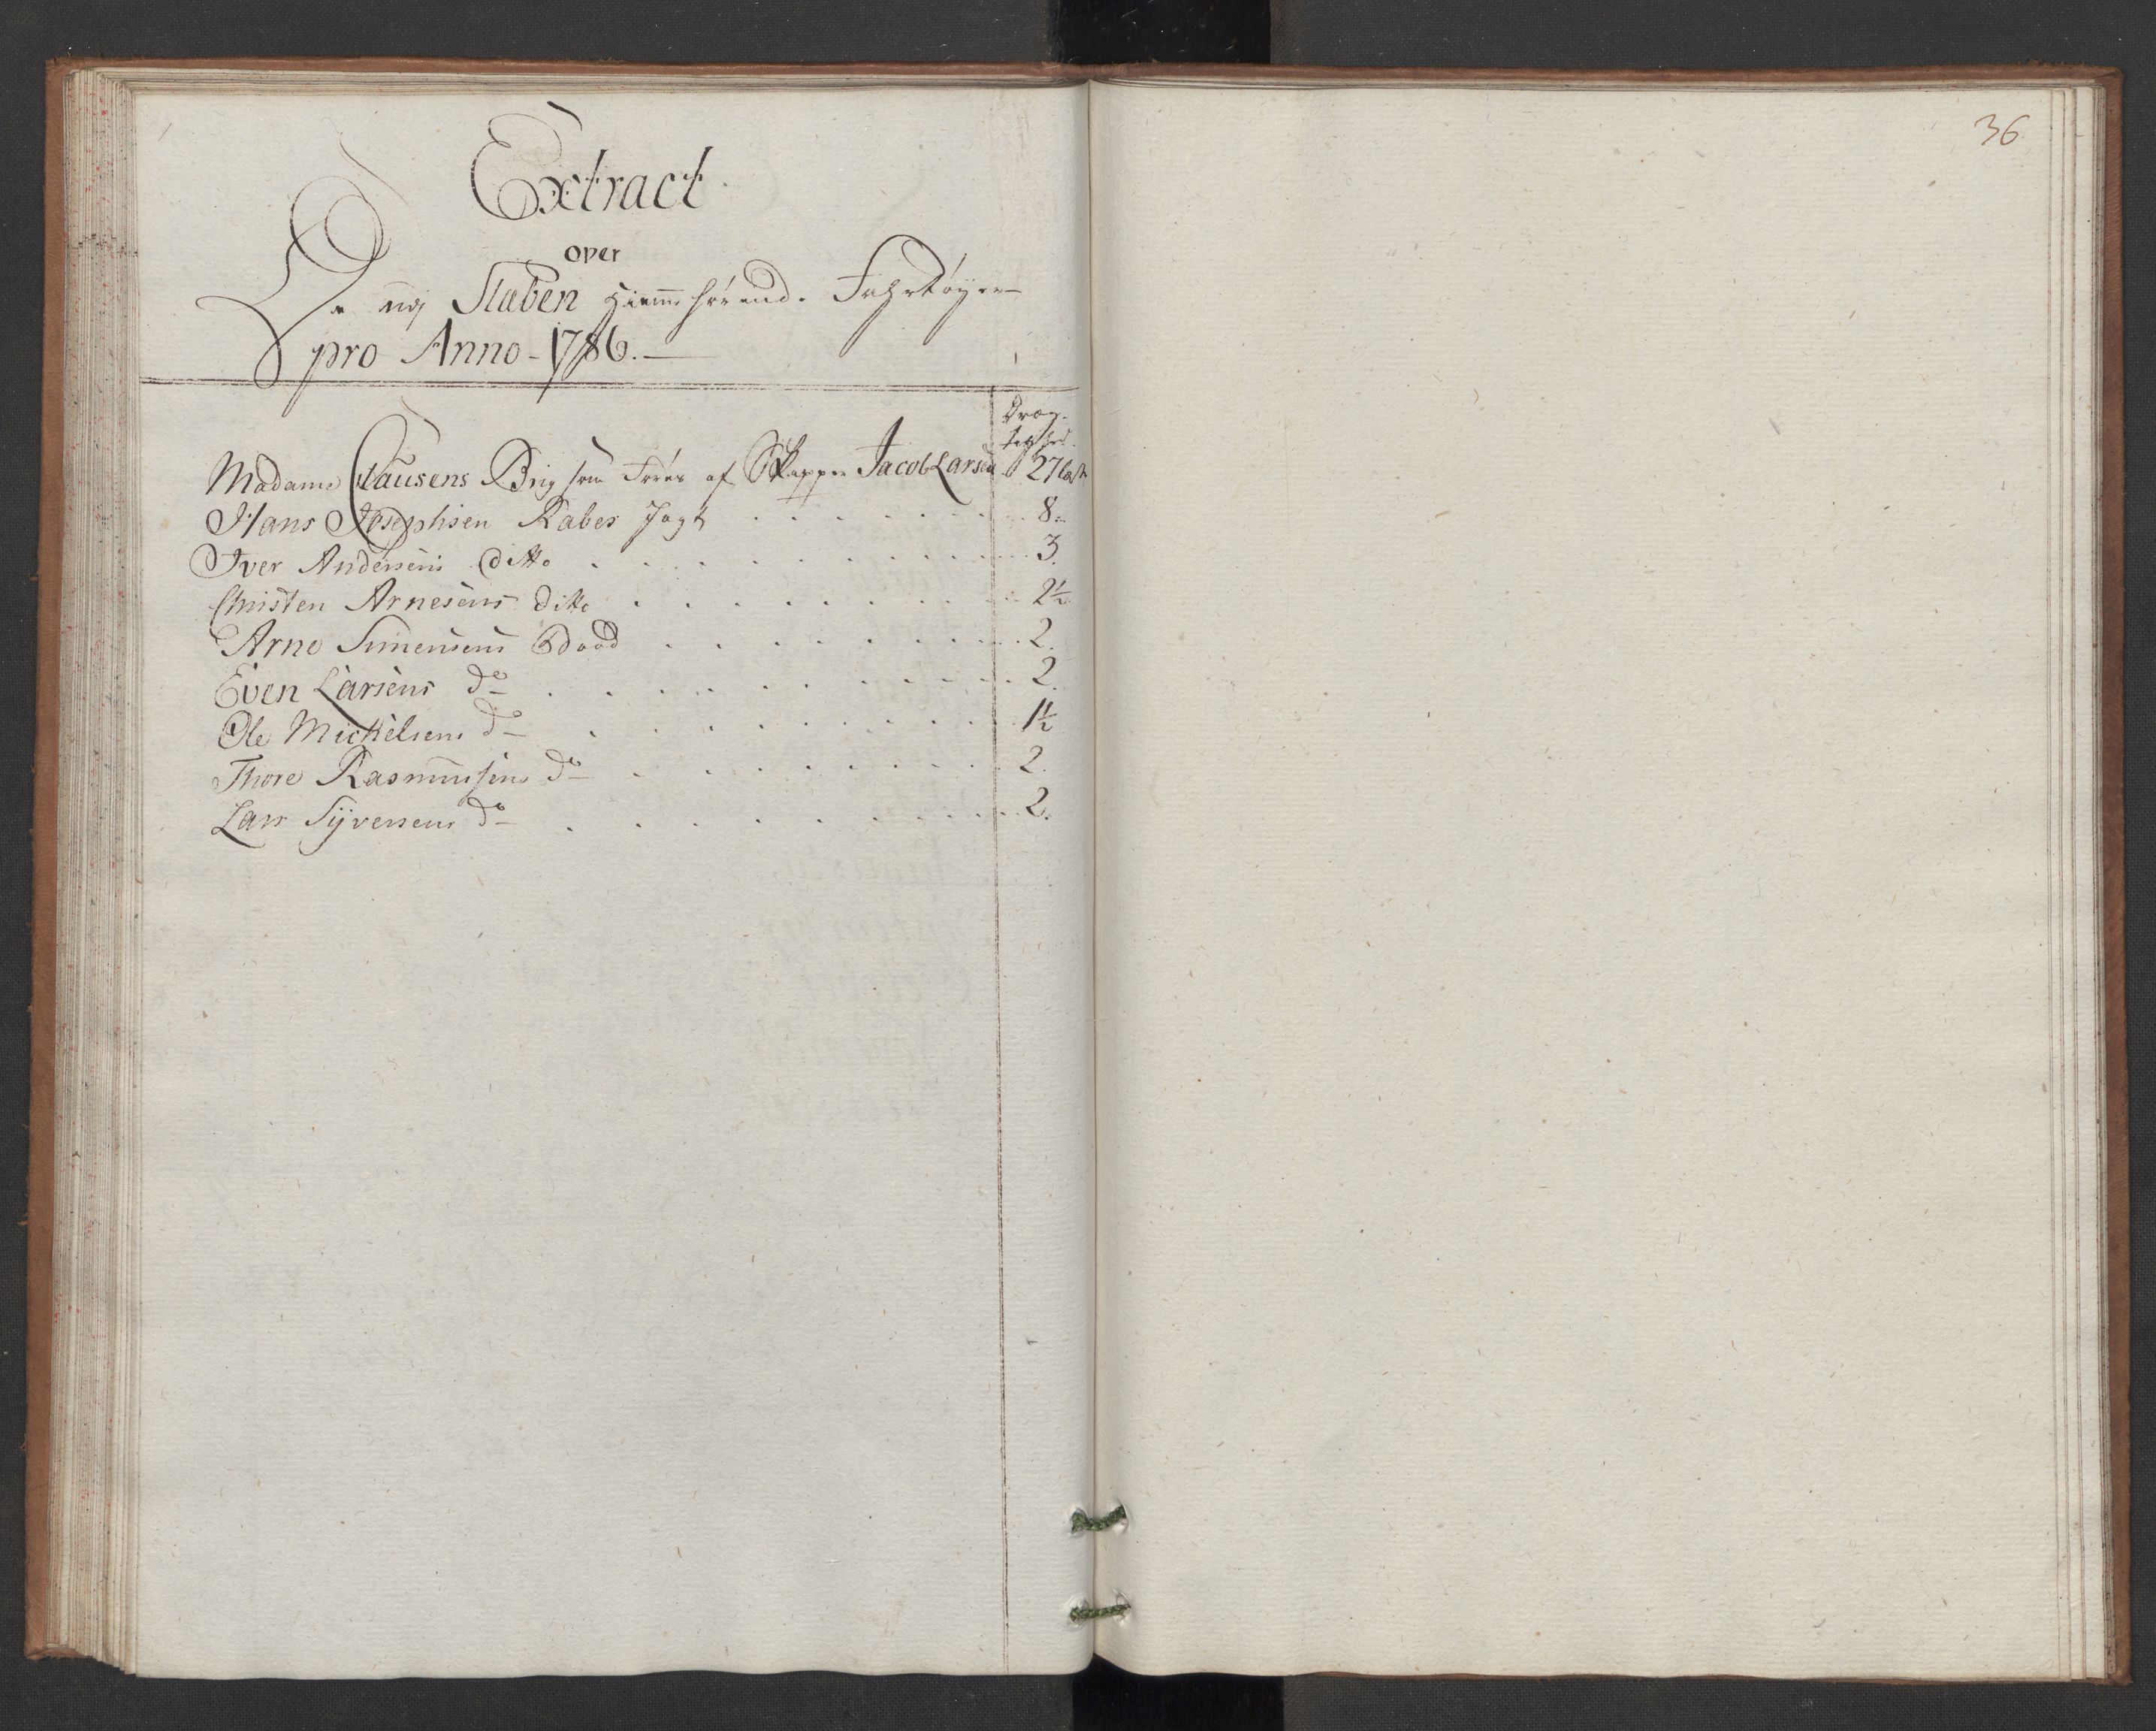 Extract
over
De udj Staben Hiemmehørende Fahrtøyer
pro Anno - 1786.
Dræg-
tighed.
Madame Clausens Brig som Føres af Skipper Jacob Larsen 27 læst
Hans Josephsen Rabes Jagt 8
Iver Andersens ditto 3.
Christen Arnesens ditto 2½
Arne Simensens Baad 2.
Even Larsens do 2.
Ole Mickelsens do 1½
Thore Rasmusens do 2.
Lars Syversens do 2.
36